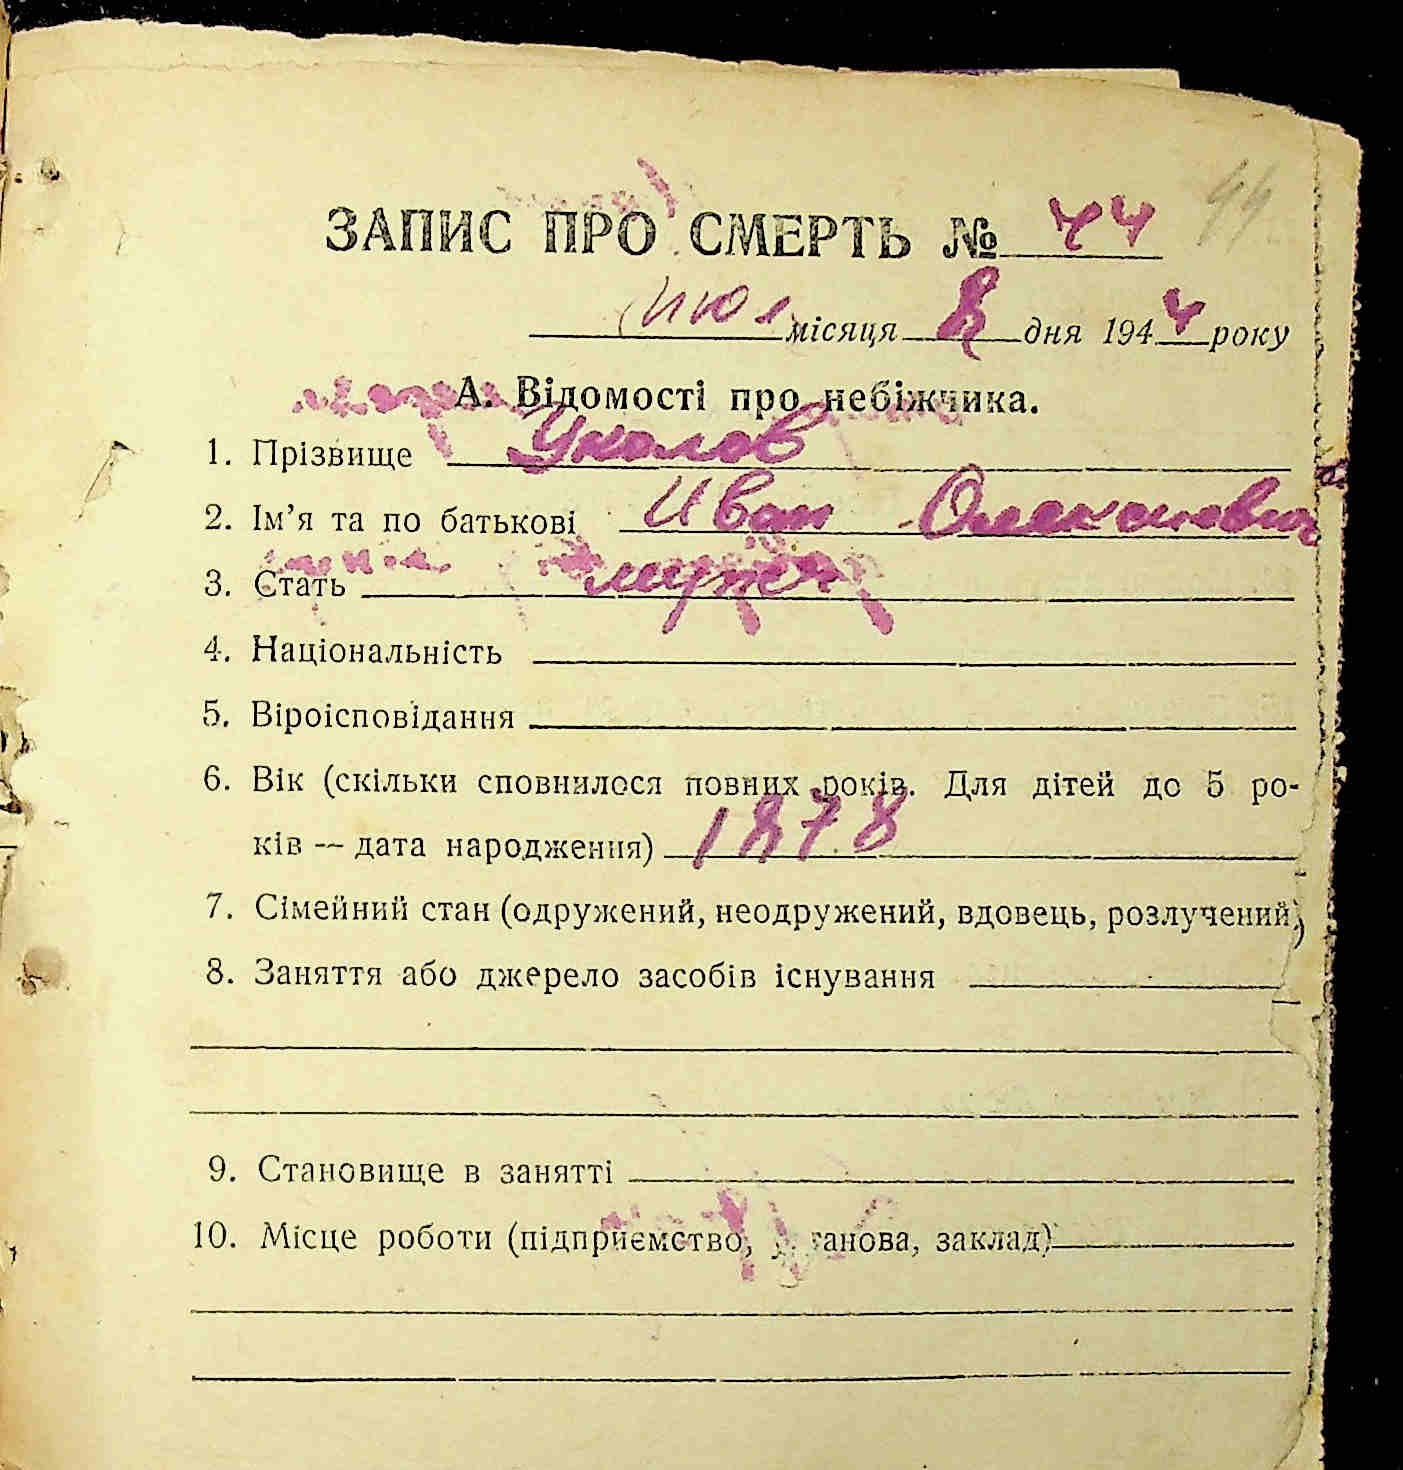 ЗАПИС ПРО СМЕРТЬ № 44 44
Июл місяця 8 дня 1944 року
А. Відомості про небіжчика.
1. Прізвище Уколов
2. Ім’я та по батькові Иван Олексеевич
3. Стать мужск
4. Національність
5. Віроісповідання
6. Вік (скільки сповнилося повних років. Для дітей до 5 ро-
ків — дата народження) 1878
7. Сімейний стан (одружений, неодружений, вдовець, розлучений)
8. Заняття або джерело засобів існування
9. Становище в занятті
10. Місце роботи (підприємство, установа, заклад)